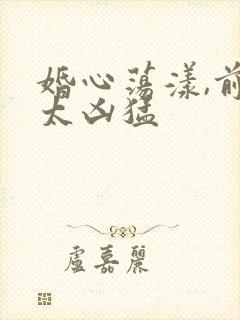 婚心荡漾,前
太凶猛
盧嘉麗